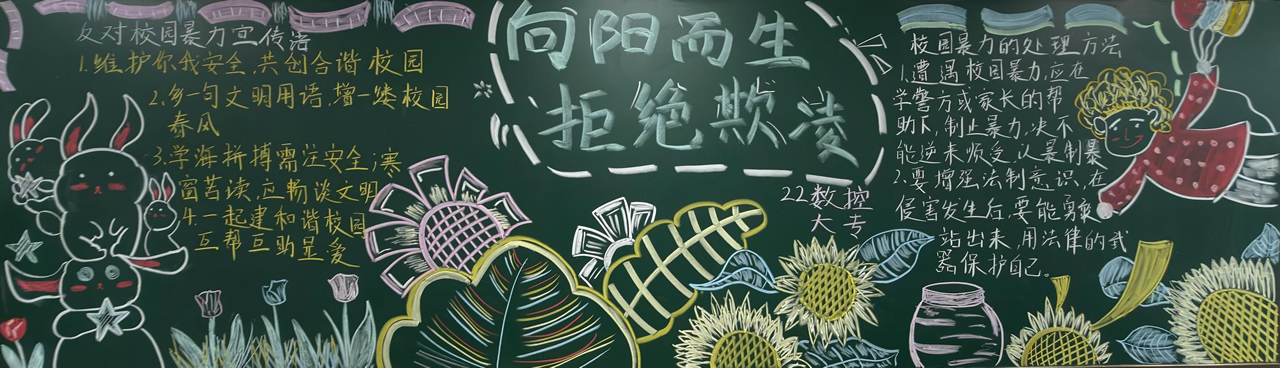 反对校园暴力宣传语
1.维护你我安全,共创合谐校园
2.多一句文明用语,增一缕校园
春风
3.学海拼搏需注安全;寒
窗苦读,应畅谈文明
4.一起建和谐校园
互帮互助显爱
向阳而生
拒绝欺凌
22数控
大专
校园暴力的处理方法
1.遭遇校园暴力,应在
学警方或家长的帮
助下,制止暴力,决不
能逆来顺受,以暴制暴
2.要增强法制意识,在
侵害发生后,要能勇敢
站出来,用法律的武
器保护自己。